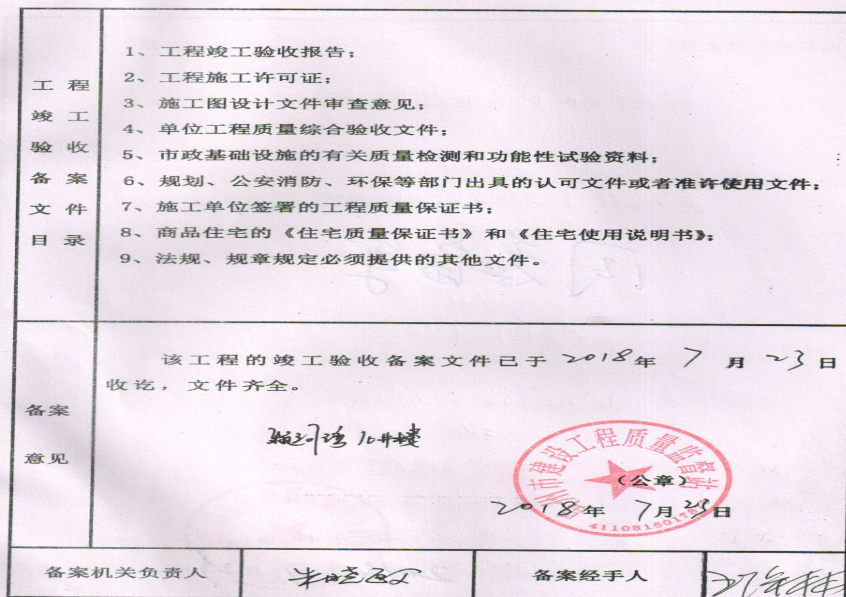 工程
竣工
验收
备案
文件
目录
1、工程竣工验收报告；
2、工程施工许可证；
3、施工图设计文件审查意见；
4、单位工程质量综合验收文件；
5、市政基础设施的有关质量检测和功能性试验资料；
6、规划、公安消防、环保等部门出具的认可文件或者准许使用文件；
7、施工单位签署的工程质量保证书；
8、商品住宅的《住宅质量保证书》和《住宅使用说明书》；
9、法规、规章规定必须提供的其他文件。
备案
意见
该工程的竣工验收备案文件已于2018年 7 月 23 日
收讫，文件齐全。
市建设工程质量监督站
（公章）
2018年 7月23日
备案机关负责人
备案经手人